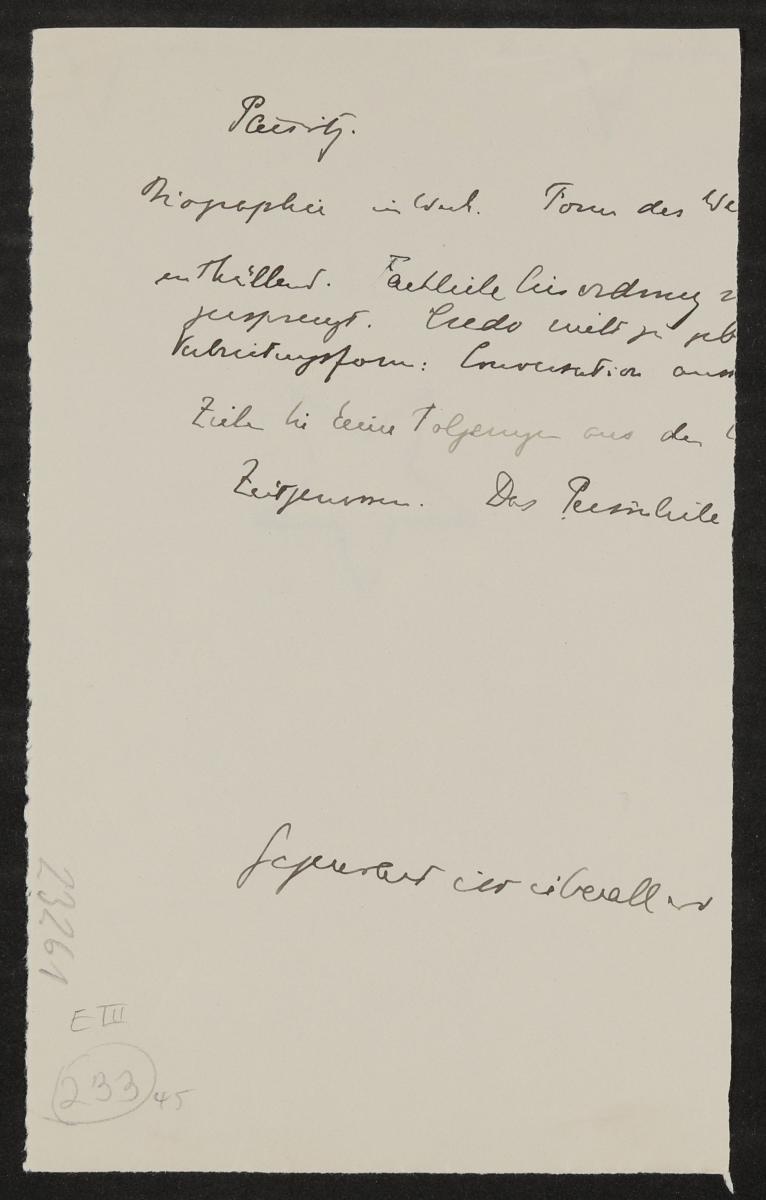 Biographie in Werk. Form des We
enthüllend. Fachliche Einordnung
gesprengt. Credo
Verbreitungsform: Conversation
Ziele keine Folgerungen aus den
Zeitgenossen. Das Persönliche
Gegenstand ist überall
23261
E III
233 45